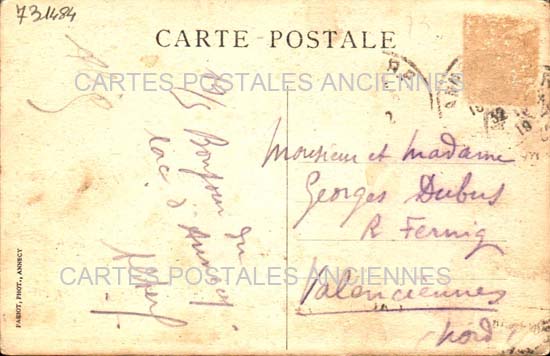 731484
CARTE POSTALE
CARTES POSTALES ANCIENNES
Bonjour du
lac d'Annecy
Monsieur et Madame
Georges Dubus
R Fernig
Valenciennes
Nord
CARTES POSTALES ANCIENNES
PARIOT, PHOT., ANNECY